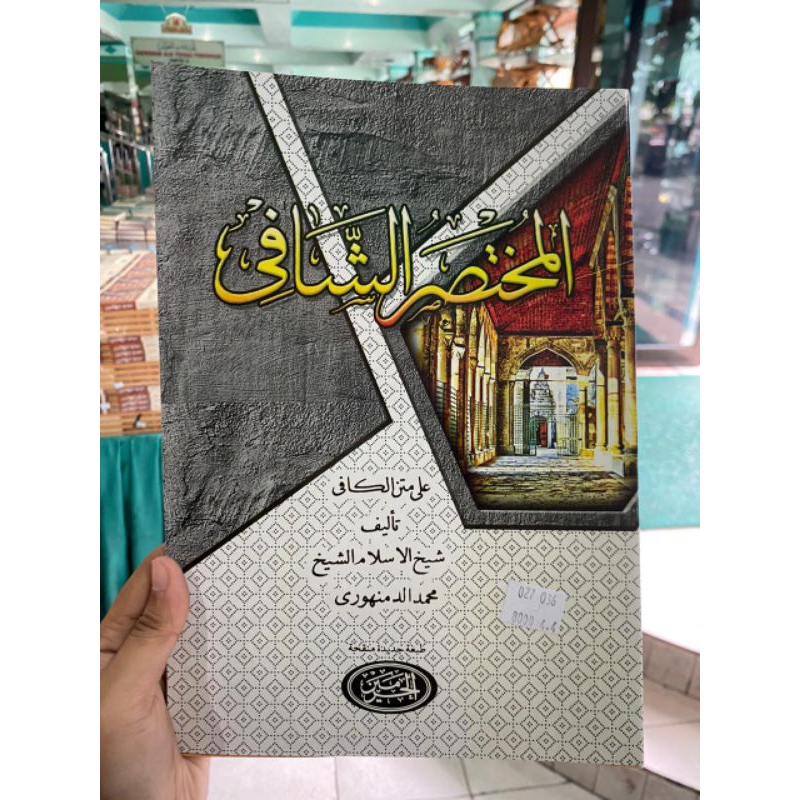 المُخْتَصَرُ الشَّافِي
على متن الكافى
تأليف
شيخ الاسلام الشيخ
محمد الدمنهورى
027 036
طبعة جديدة منقحة
الحرمين